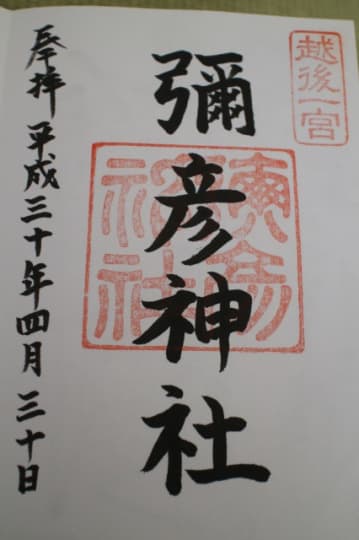 越後一宮
彌彦神社
奉拝 平成三十年四月三十日